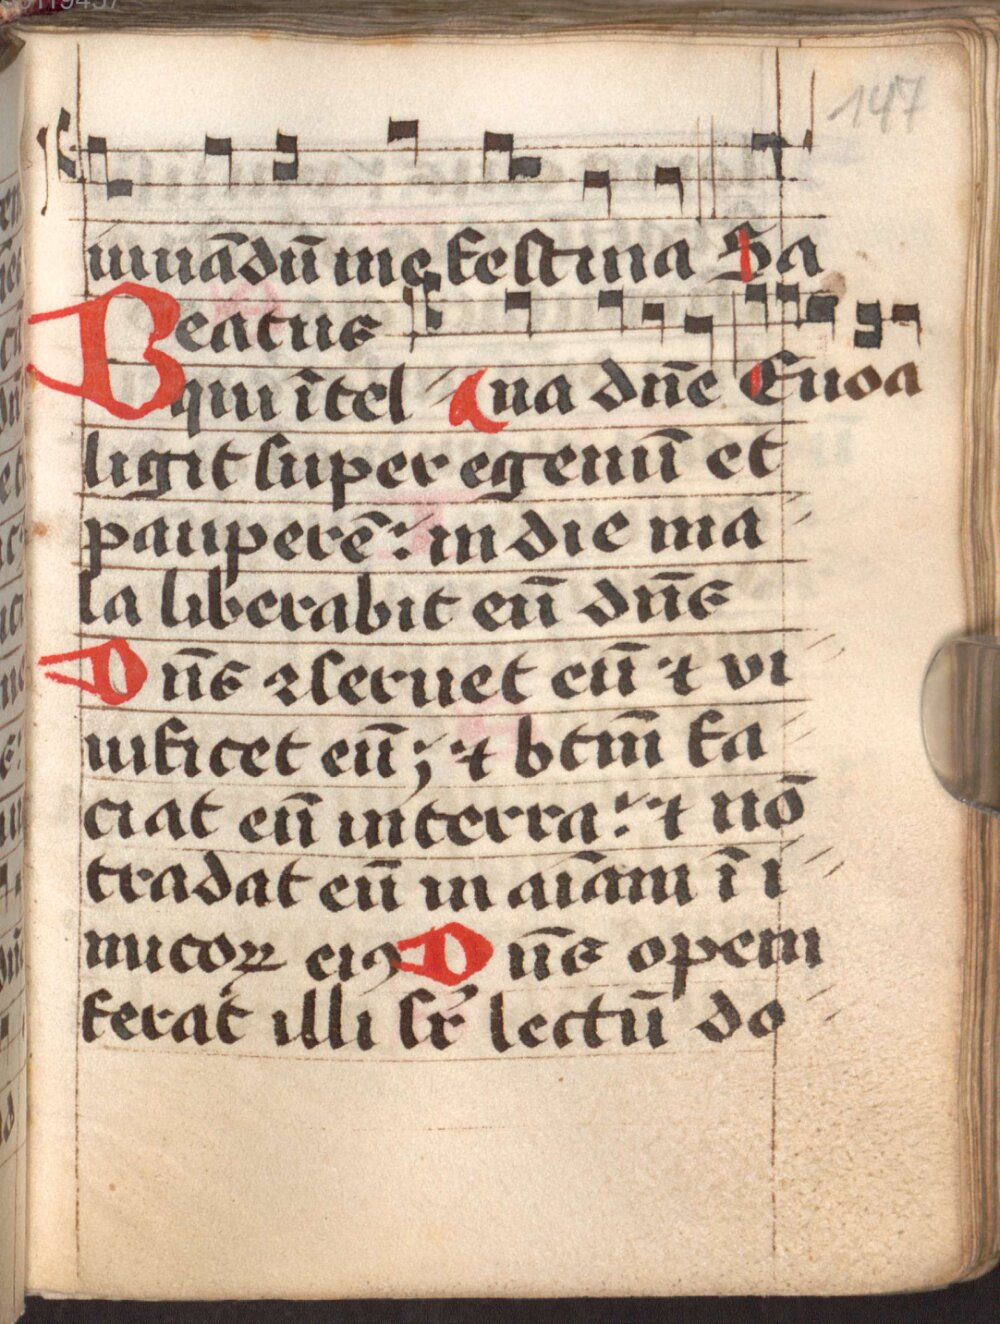 147
iuuãdũ me festina Sa
Beatus
qui ĩtel Qua dñe Euoa
ligit super egenũ et
pauperẽ: in die ma
la liberabit eũ dñs
Dñs ꝯseruet eũ ⁊ vi
uificet eũ; ⁊ btm̃ fa
ciat eũ in terra: ⁊ nõ
tradat eũ in aĩam ĩi
micoꝝ eiꝯ Dñs opem
ferat illi sr̃ lectũ do